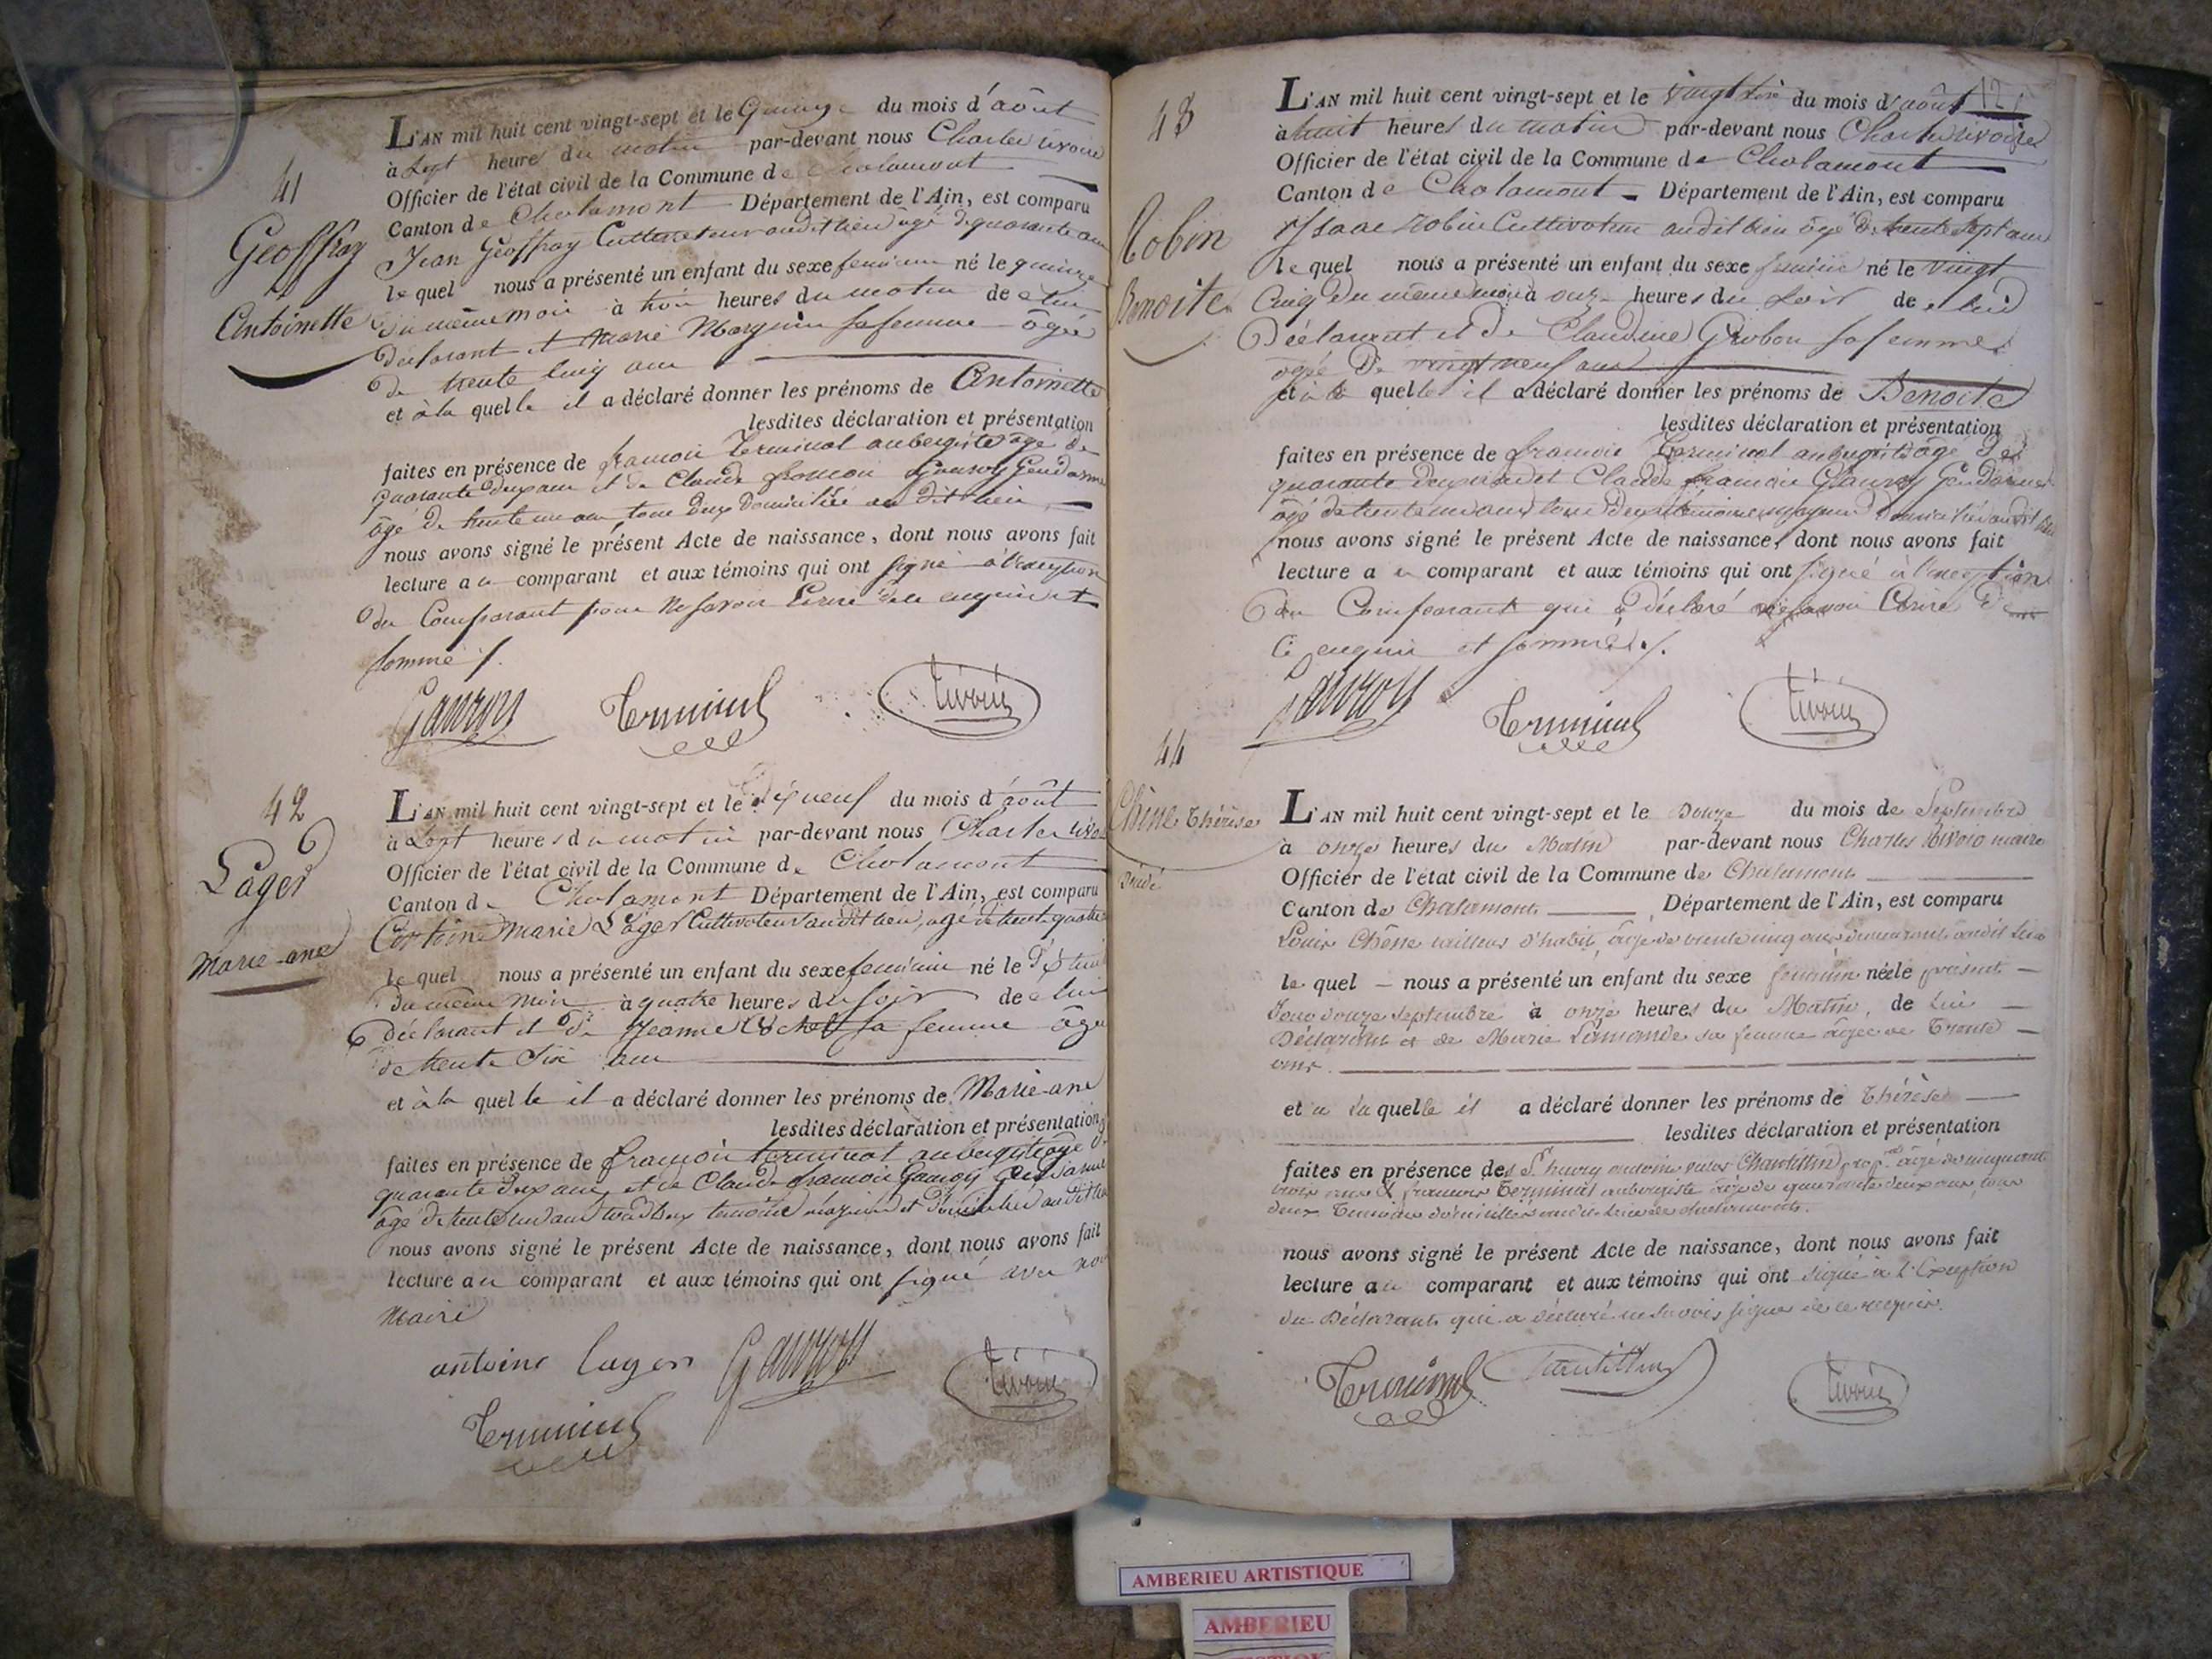 41
Geoffray
Antoinette
L'AN mil huit cent vingt-sept et le Quinze du mois d'août
à Sept heures du matin par-devant nous Charles rivoire
Officier de l'état civil de la Commune de Chalamont
Canton de Chalamont Département de l'Ain, est comparu
Jean Geoffray Cultivateur audit lieu âgé de quarante ans
lequel nous a présenté un enfant du sexe feminin né le quinze
du même mois à trois heures du matin de lui
déclarant et Marie Morguin sa femme âgée
de trente cinq ans
et à la quelle il a déclaré donner les prénoms de Antoinette
lesdites déclaration et présentation
faites en présence de francois Terminal aubergiste âgé de
quarante deux ans et de Claude francois Gauroy Gendarme
âgé de trente un ans tous deux domiciliés au dit lieu
nous avons signé le présent Acte de naissance, dont nous avons fait
lecture au comparant et aux témoins qui ont signé à l'exception
du Comparant pour ne savoir Ecrire de ce enquis et
sommé /.
Gauroy Terminal rivoire
42
Lager
Marie-ane
L'AN mil huit cent vingt-sept et le dixneuf du mois d'août
à Sept heures du matin par-devant nous Charles
Officier de l'état civil de la Commune de Chalamont
Canton de Chalamont Département de l'Ain, est comparu
Antoine Marie Lager Cultivateur audit lieu, agé de trente quatre
le quel nous a présenté un enfant du sexe feminin né le
du même mois à quatre heures du soir de lui
déclarant et de Jeanne sa femme âgée
de trente Six ans
et à la quelle il a déclaré donner les prénoms de Marie-ane
lesdites déclaration et présentation
faites en présence de francois terminal aubergiste âgé de
quarante deux ans, et de Claude francois Gauroy Gendarme
âgé de trente un ans tous deux temoins majeurs et domiciliés audit lieu
nous avons signé le présent Acte de naissance, dont nous avons fait
lecture au comparant et aux témoins qui ont signé avec nous
Maire
antoine lager Gauroy rivoire
Terminal
12
43
Robin
Benoite
L'AN mil huit cent vingt-sept et le Vingt Six du mois d'août
à huit heures du matin par-devant nous Charles rivoire
Officier de l'état civil de la Commune de Chalamont
Canton de Chalamont Département de l'Ain, est comparu
Isaac robin Cultivateur audit lieu âgé de trente Sept ans
le quel nous a présenté un enfant du sexe feminin né le vingt
Cinq du même mois à onze heures du Soir de lui
Déclarant et de Claudine Grobon sa femme
agée de vingt neuf ans
et à la quelle il a déclaré donner les prénoms de Benoite
lesdites déclaration et présentation
faites en présence de francois Terminal aubergiste âgé de
quarante deux ans et Claude francois Gauroy Gendarme
âgé de trente un ans tous deux témoins majeurs domiciliés audit lieu
nous avons signé le présent Acte de naissance, dont nous avons fait
lecture au comparant et aux témoins qui ont signé à l'exception
du Comparant qui a déclaré ne savoir Ecrire de
ce enquis et sommé /.
Gauroy Terminal rivoire
44
Chêne Thérèse
L'AN mil huit cent vingt-sept et le Douze du mois de Septembre
à onze heures du Matin par-devant nous Charles Rivoire maire
Officier de l'état civil de la Commune de Chalamont
Canton de Chalamont Département de l'Ain, est comparu
Louis Chêne tailleur d'habit, âgé de trente cinq ans demeurant audit lieu
le quel nous a présenté un enfant du sexe feminin née le présent
Jour douze septembre à onze heures du Matin, de lui
Déclarant et de Marie Lamande sa femme âgée de Trente
ans.
et a la quelle il a déclaré donner les prénoms de Thérèse
lesdites déclaration et présentation
faites en présence des Sr antoine Chantillin âgé de cinquante
trois ans & francois Terminal aubergiste âgé de quarante deux ans, tous
deux Témoins domiciliés Chalamont.
nous avons signé le présent Acte de naissance, dont nous avons fait
lecture au comparant et aux témoins qui ont signé à l'Exception
du Déclarant qui a déclaré ne savoir signer de ce requis.
Terminal rivoire
AMBERIEU ARTISTIQUE
AMBERIEU